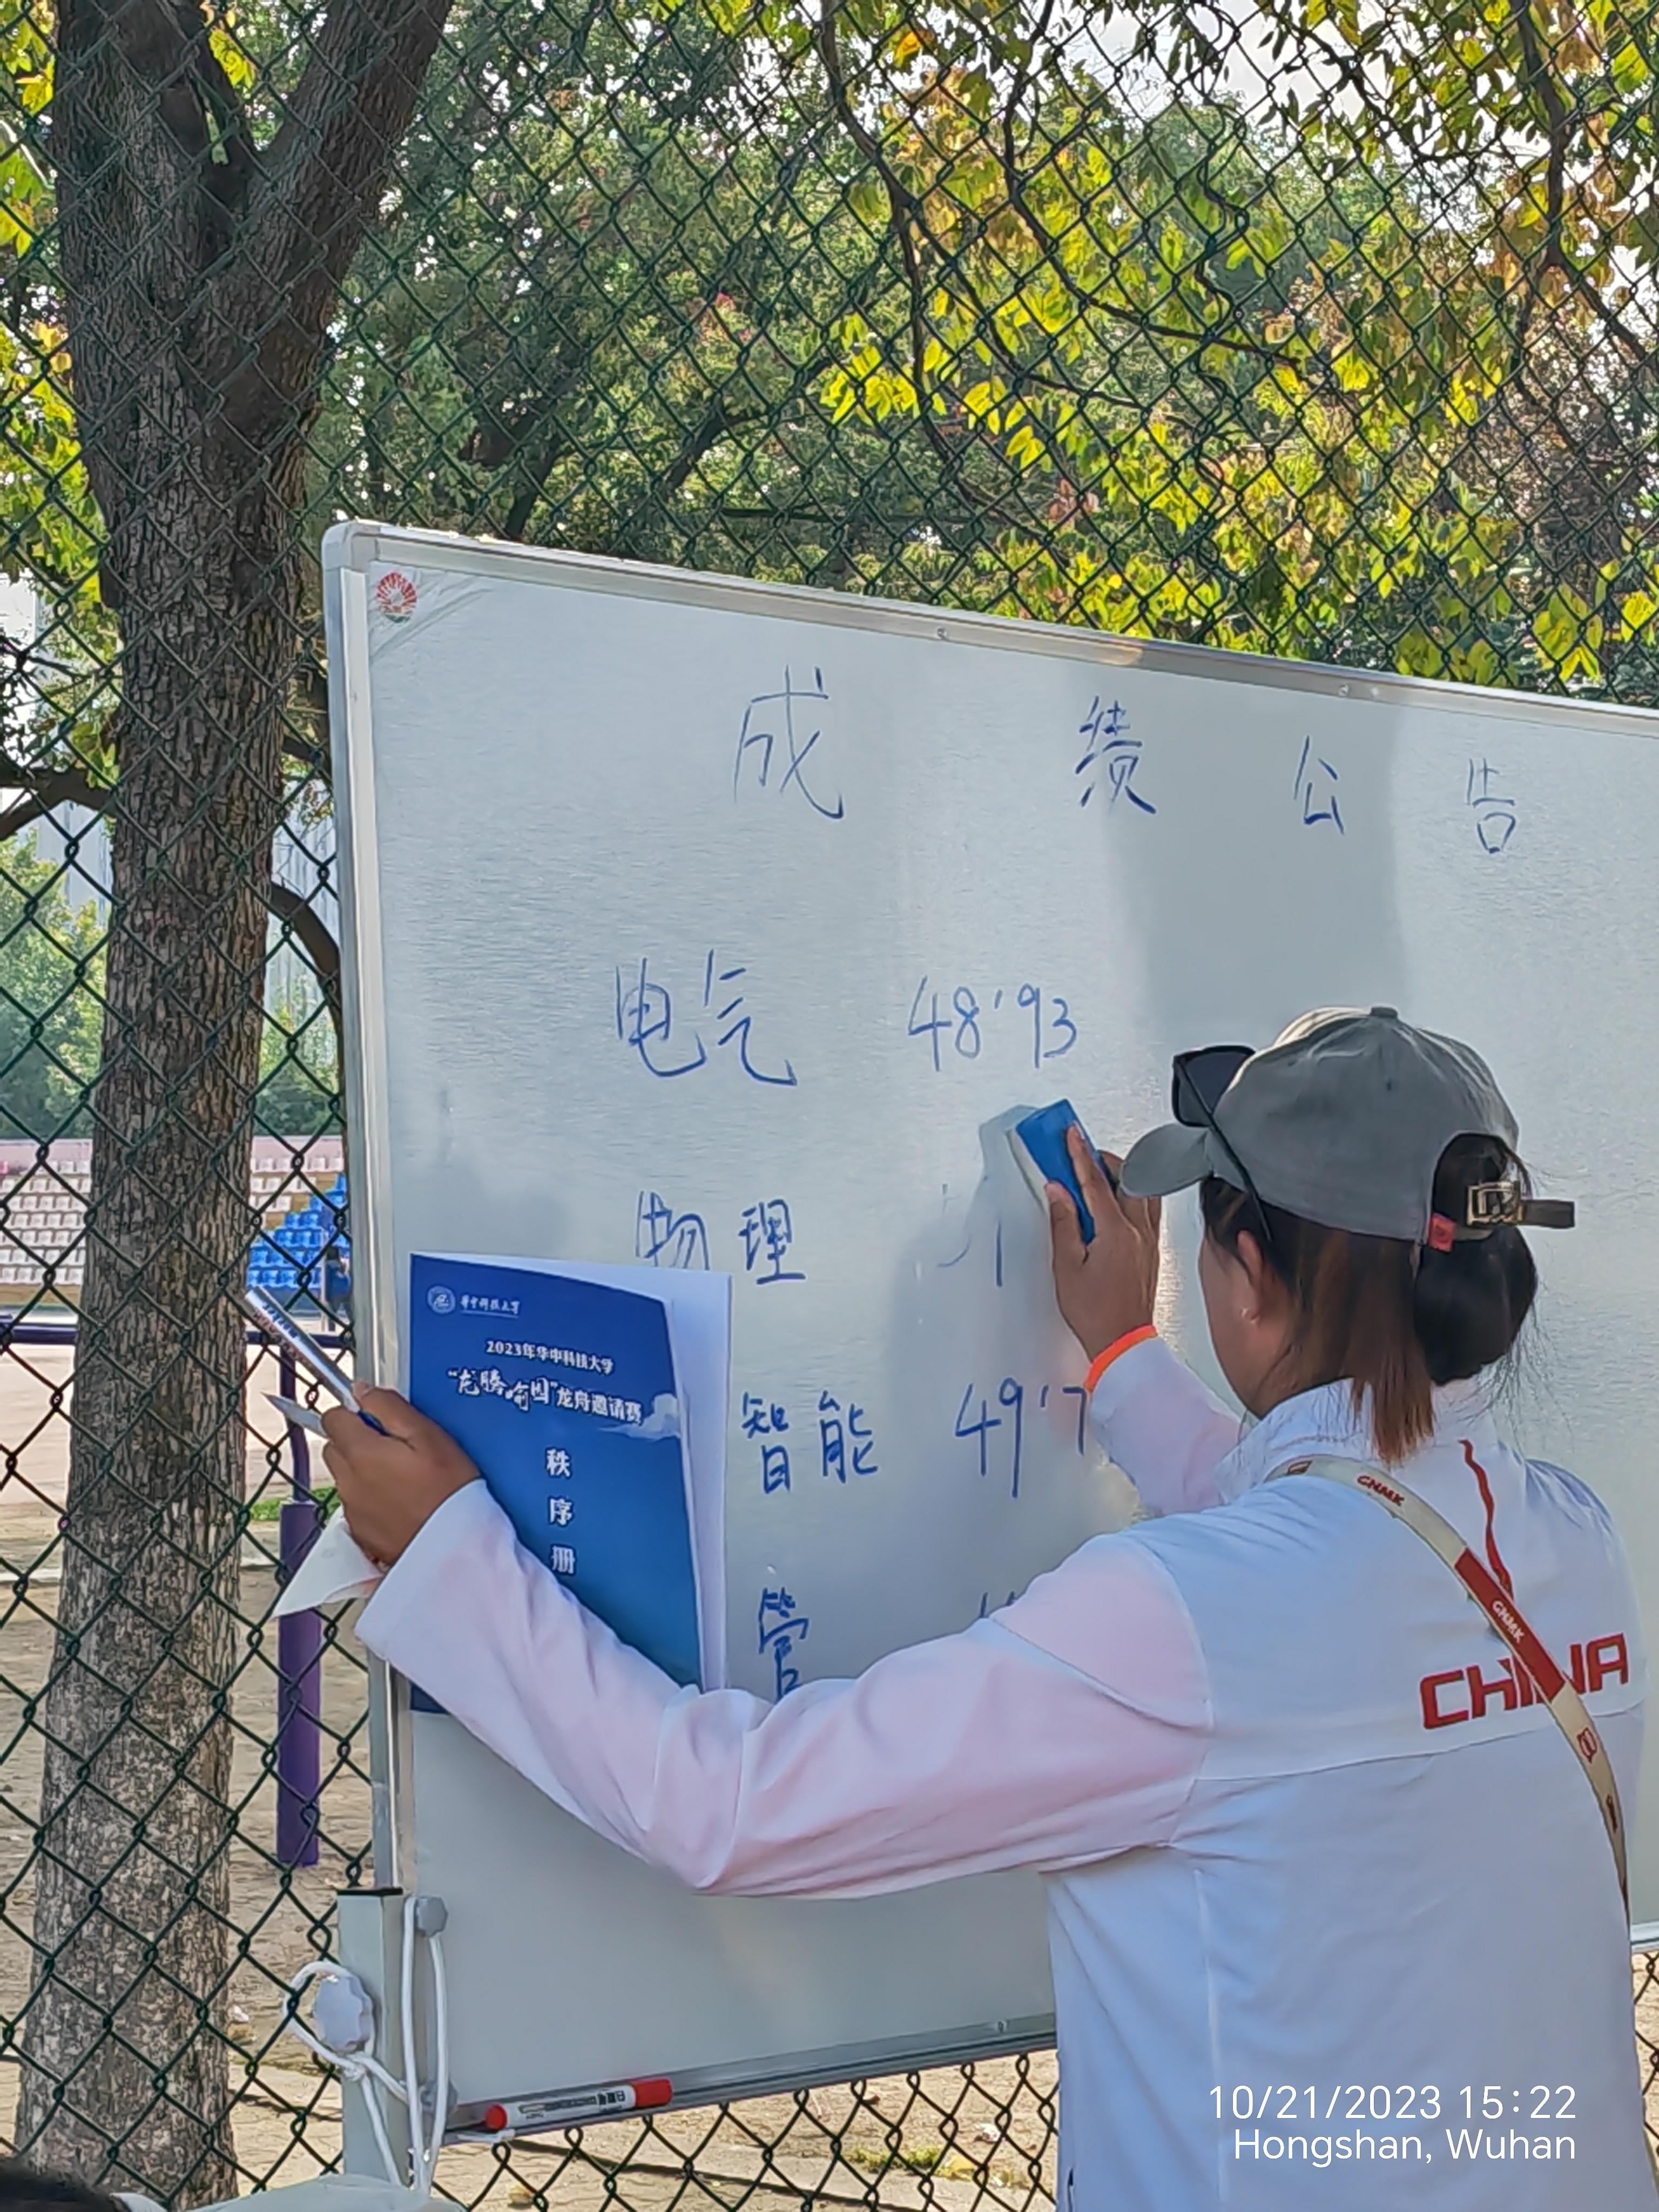 成绩公告
电气 48'93
物理
智能 49'7
管
华中科技大学
2023年华中科技大学
"龙腾喻园"龙舟邀请赛
秩
序
册
GNMK
GNMK
CHINA
10/21/2023 15:22
Hongshan, Wuhan